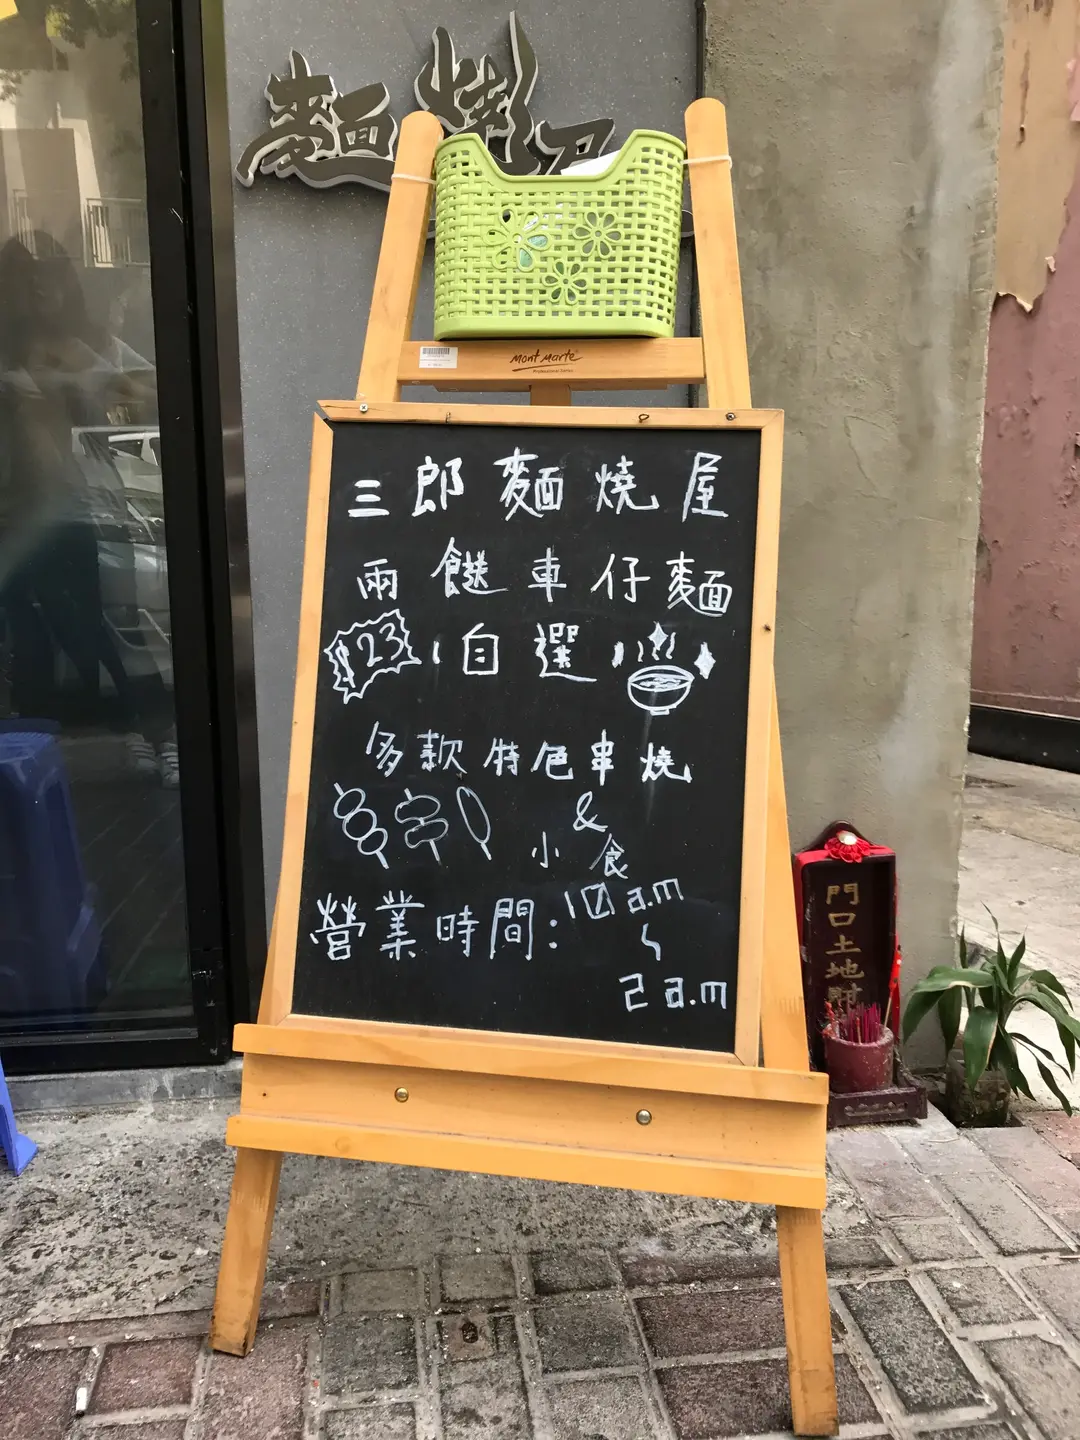 麵燒
mont marte
三郎麵燒屋
兩餸車仔麵
$23 自選
多款特色串燒
&
小食
營業時間:10a.m
2a.m
門口土地財